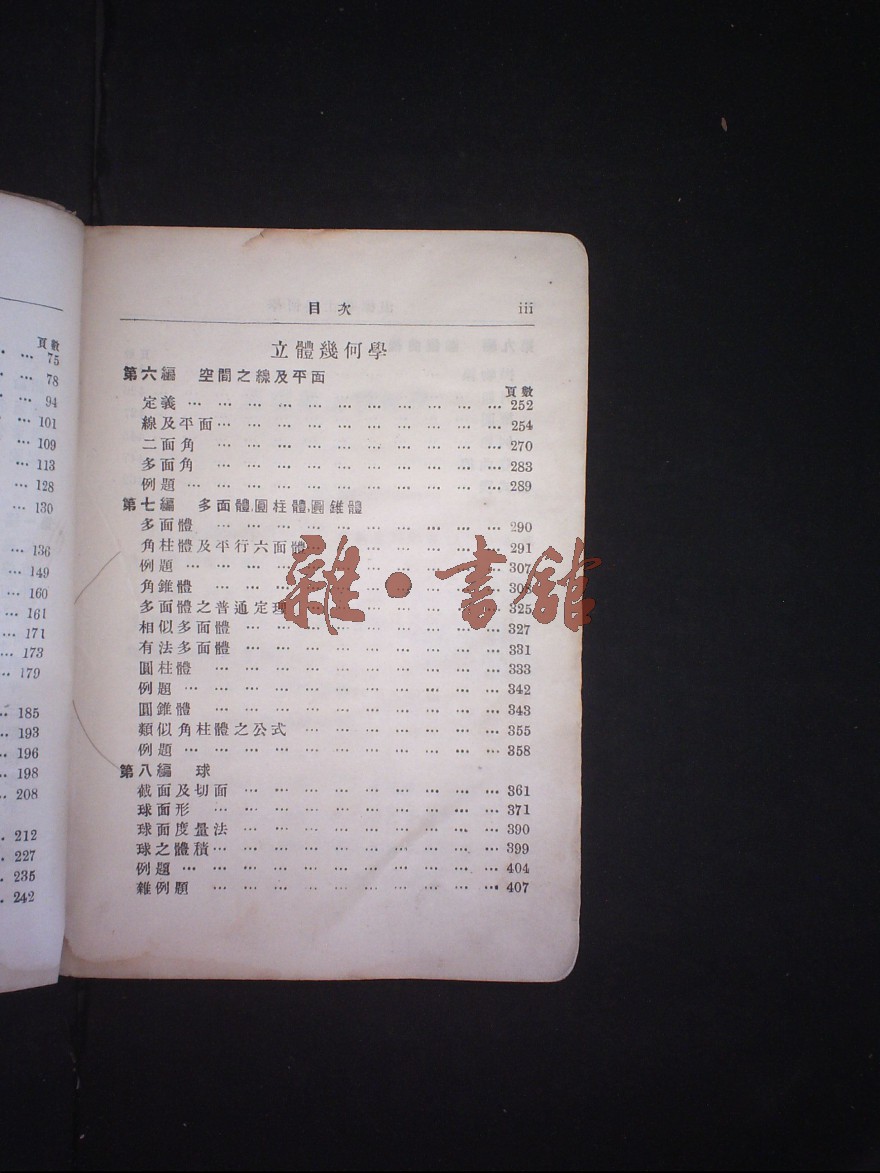 頁數
… 75
… 78
… 94
… 101
… 109
… 113
… 128
… 130
… 136
… 149
… 160
… 161
… 171
… 173
… 179
… 185
… 193
… 196
… 198
… 208
… 212
… 227
… 235
… 242
目次 iii
立體幾何學
第六編 空間之線及平面
頁數
定義 … … … … … … … … … … … 252
線及平面 … … … … … … … … … … 254
二面角 … … … … … … … … … … 270
多面角 … … … … … … … … … … 283
例題 … … … … … … … … … … … 289
第七編 多面體,圓柱體,圓錐體
多面體 … … … … … … … … … … 290
角柱體及平行六面體 … … … … … … … 291
例題 … … … … … … … … … … … 307
角錐體 … … … … … … … … … … 308
多面體之普通定理 … … … … … … … 325
相似多面體 … … … … … … … … … 327
有法多面體 … … … … … … … … … 331
圓柱體 … … … … … … … … … … 333
例題 … … … … … … … … … … … 342
圓錐體 … … … … … … … … … … 343
類似角柱體之公式 … … … … … … … 355
例題 … … … … … … … … … … … 358
第八編 球
截面及切面 … … … … … … … … … 361
球面形 … … … … … … … … … … 371
球面度量法 … … … … … … … … … 390
球之體積 … … … … … … … … … … 399
例題 … … … … … … … … … … … 404
雜例題 … … … … … … … … … … 407
雜·書館